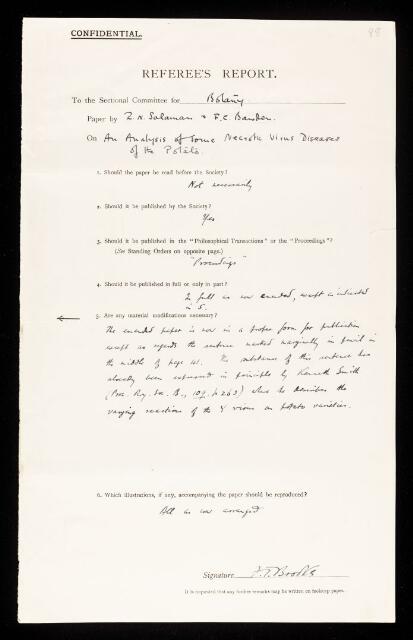 CONFIDENTIAL.
98
REFEREE'S REPORT.
To the Sectional Committee for Botany
Paper by R. N. Salaman & F. C. Bawden.
On An Analysis of Some Necrotic Virus Diseases
of the Potato.
1. Should the paper be read before the Society?
Not necessarily
2. Should it be published by the Society?
Yes
3. Should it be published in the "Philosophical Transactions" or the "Proceedings"?
(See Standing Orders on opposite page.)
"Proceedings"
4. Should it be published in full or only in part?
In full as now emended, except as indicated
in 5.
5. Are any material modifications necessary?
The emended paper is now in a proper form for publication
except as regards the sentence marked marginally in pencil in
the middle of page 41. The substance of this sentence has
already been expressed in principle by Kenneth Smith
(Proc. Roy. Soc. B., 109, p. 263) where he describes the
varying reactions of the Y virus on potato varieties.
6. Which illustrations, if any, accompanying the paper should be reproduced?
All as now arranged
Signature F. T. Brooks
It is requested that any further remarks may be written on foolscap paper.